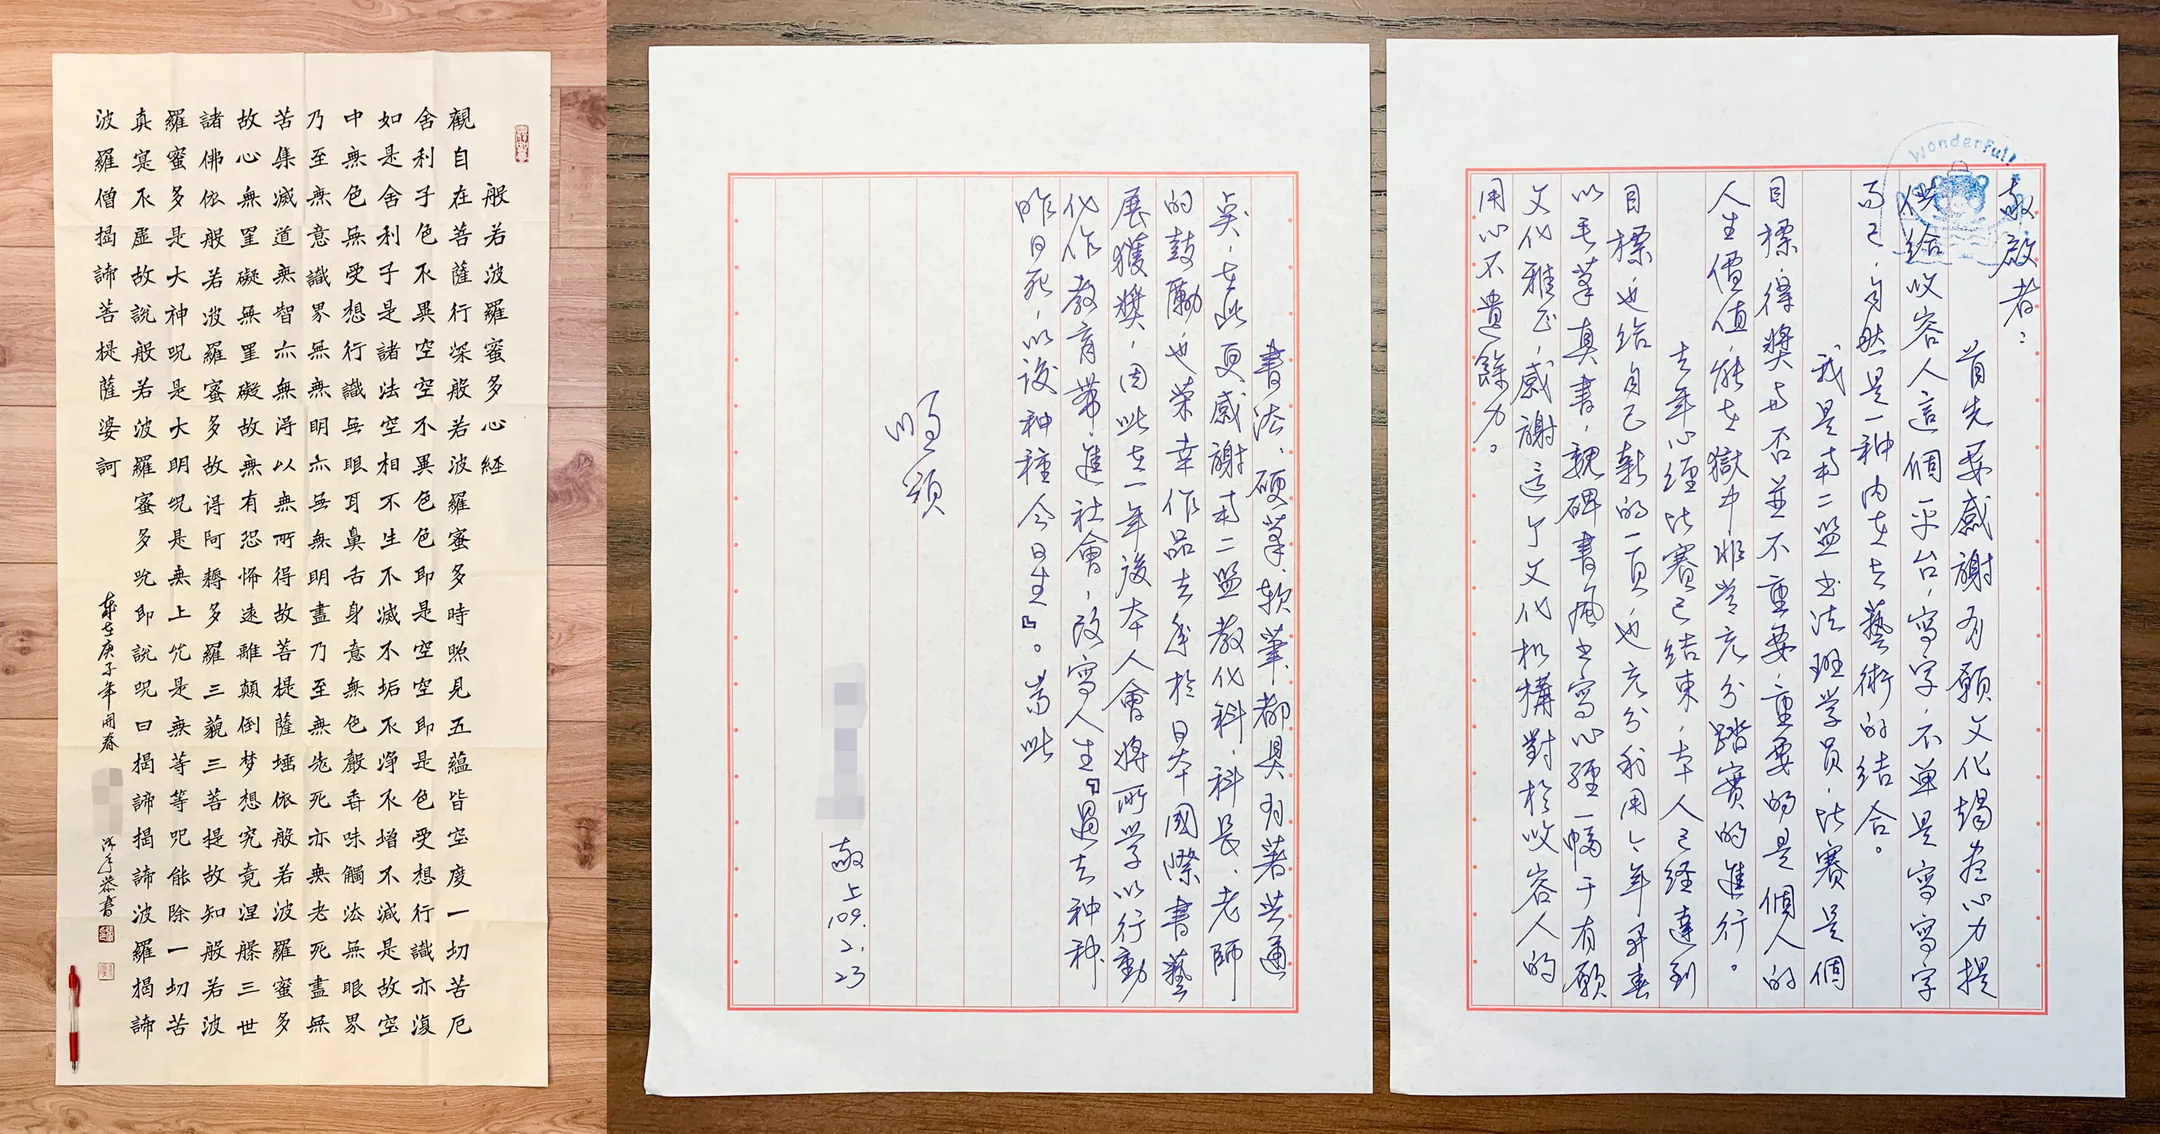 般若波羅蜜多心経
觀自在菩薩行深般若波羅蜜多時照見五蘊皆空度一切苦厄
舍利子色不異空空不異色色即是空空即是色受想行識亦復
如是舍利子是諸法空相不生不滅不垢不淨不增不減是故空
中無色無受想行識無眼耳鼻舌身意無色聲香味觸法無眼界
乃至無意識界無無明亦無無明盡乃至無老死亦無老死盡無
苦集滅道無智亦無得以無所得故菩提薩埵依般若波羅蜜多
故心無罣礙無罣礙故無有恐怖遠離顛倒梦想究竟涅槃三世
諸佛依般若波羅蜜多故得阿耨多羅三藐三菩提故知般若波
羅蜜多是大神呪是大明呪是無上咒是無等等呪能除一切苦
真寔不虛故說般若波羅蜜多呪即說呪曰揭諦揭諦波羅揭諦
波羅僧揭諦菩提薩婆訶
歲在庚子年開春
沐手恭書
Wonderful!
敬啟者：
首先要感謝有願文化竭盡心力提
供給收容人這個平台，寫字，不單是寫寫字
而已，自然是一种内在去藝術的结合。
我是南二監书法班学员，比赛是個
目標，得獎与否並不重要，重要的是個人的
人生價值，能在獄中非常充分踏實的進行。
去年心經比赛已结束，本人已经達到
目標，也给自己新的一頁，也充分利用今年开春
以毛筆真書，魏碑書風书寫心經一幅于有願
文化雅正，感謝這个文化机構對於收容人的
用心不遺餘力。
書法，硬筆，软筆，都具有著共通
奌，在此更感謝南二監教化科，科長，老師
的鼓勵也荣幸作品去年於日本國際書藝
展獲獎，因此在一年後本人會將所学以行動
代作教育帶進社會，改寫人生『過去种种
昨日死，以後种種今日生』。耑此
順頌
敬上
109.2.23